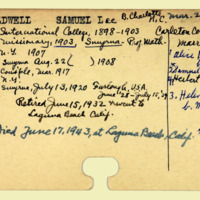 ADWELL SAMUEL Lee B. Charlotte, N.C. Mar. 2
International College, 1898-1903 Carleton Co
missionary, 1903, Smyrna - Prof. Math. marr
N.Y. 1907
Smyrna Aug. 22 1908
Constple, Mar. 1917 Samuel
N.Y. Herbert
Smyrna, July 13, 1920 Furlough, U.S.A.
June '28 - July 15, '29
Retired June 15, 1932 3. Helen
Laguna Beach Calif.
Died June 17, 1943, at Laguna Beach, Calif.